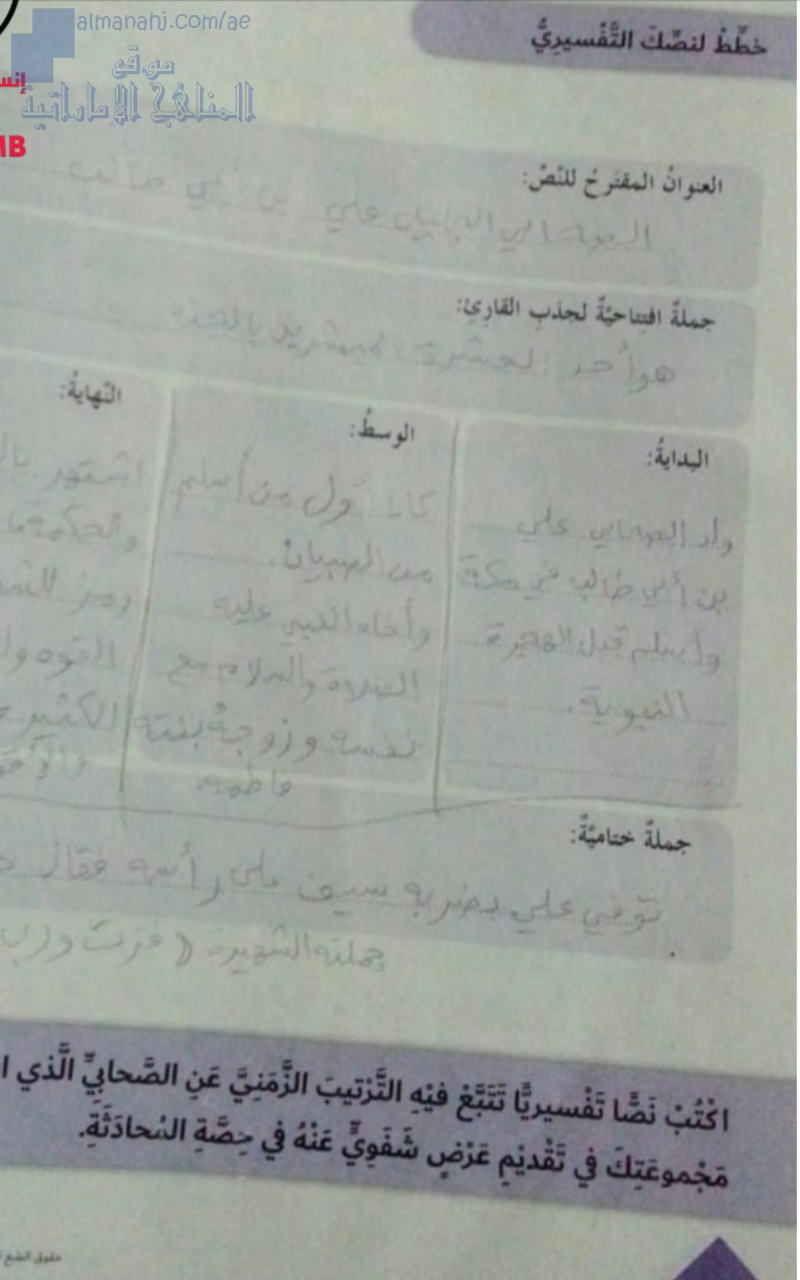 almanahj.com/ae
موقع
المناهج الإماراتية
إنس
MB
خطِّطْ لنصِّكَ التَّفْسيرِيُّ
العنوانُ المقترحُ للنّصّ:
الصحابي الجليل علي بن أبي طالب
جملةٌ افتتاحيّةٌ لجذبِ القارِئِ:
هو أحد العشرة المبشرين بالجنة
البدايةُ:
ولد الصحابي علي
بن أبي طالب في مكة
وأسلم قبل الهجرة
النبوية.
الوسطُ:
كان أول من أسلم
من الصبيان.
وأخاه النبي عليه
الصلاة والسلام مع
نفسه وزوجهُ بنته
فاطمه.
النّهايةُ:
اشتهر بال
والحكمة
رمز للش
القوه وا
الكثير
جملةٌ ختاميّةٌ:
توفي علي بضربه سيف على رأسه فقال
جملته الشهيرة (فزت ورب
اكْتُبْ نَصًّا تَفْسيريًّا تَتَبَّعْ فيْهِ التَّرْتيبَ الزَّمَنِيَّ عَنِ الصَّحابِيِّ الَّذي ا
مَجْموعَتِكَ في تَقْديْمِ عَرْضٍ شَفَوِيٍّ عَنْهُ في حِصَّةِ المُحادَثَةِ.
حقوق الطبع